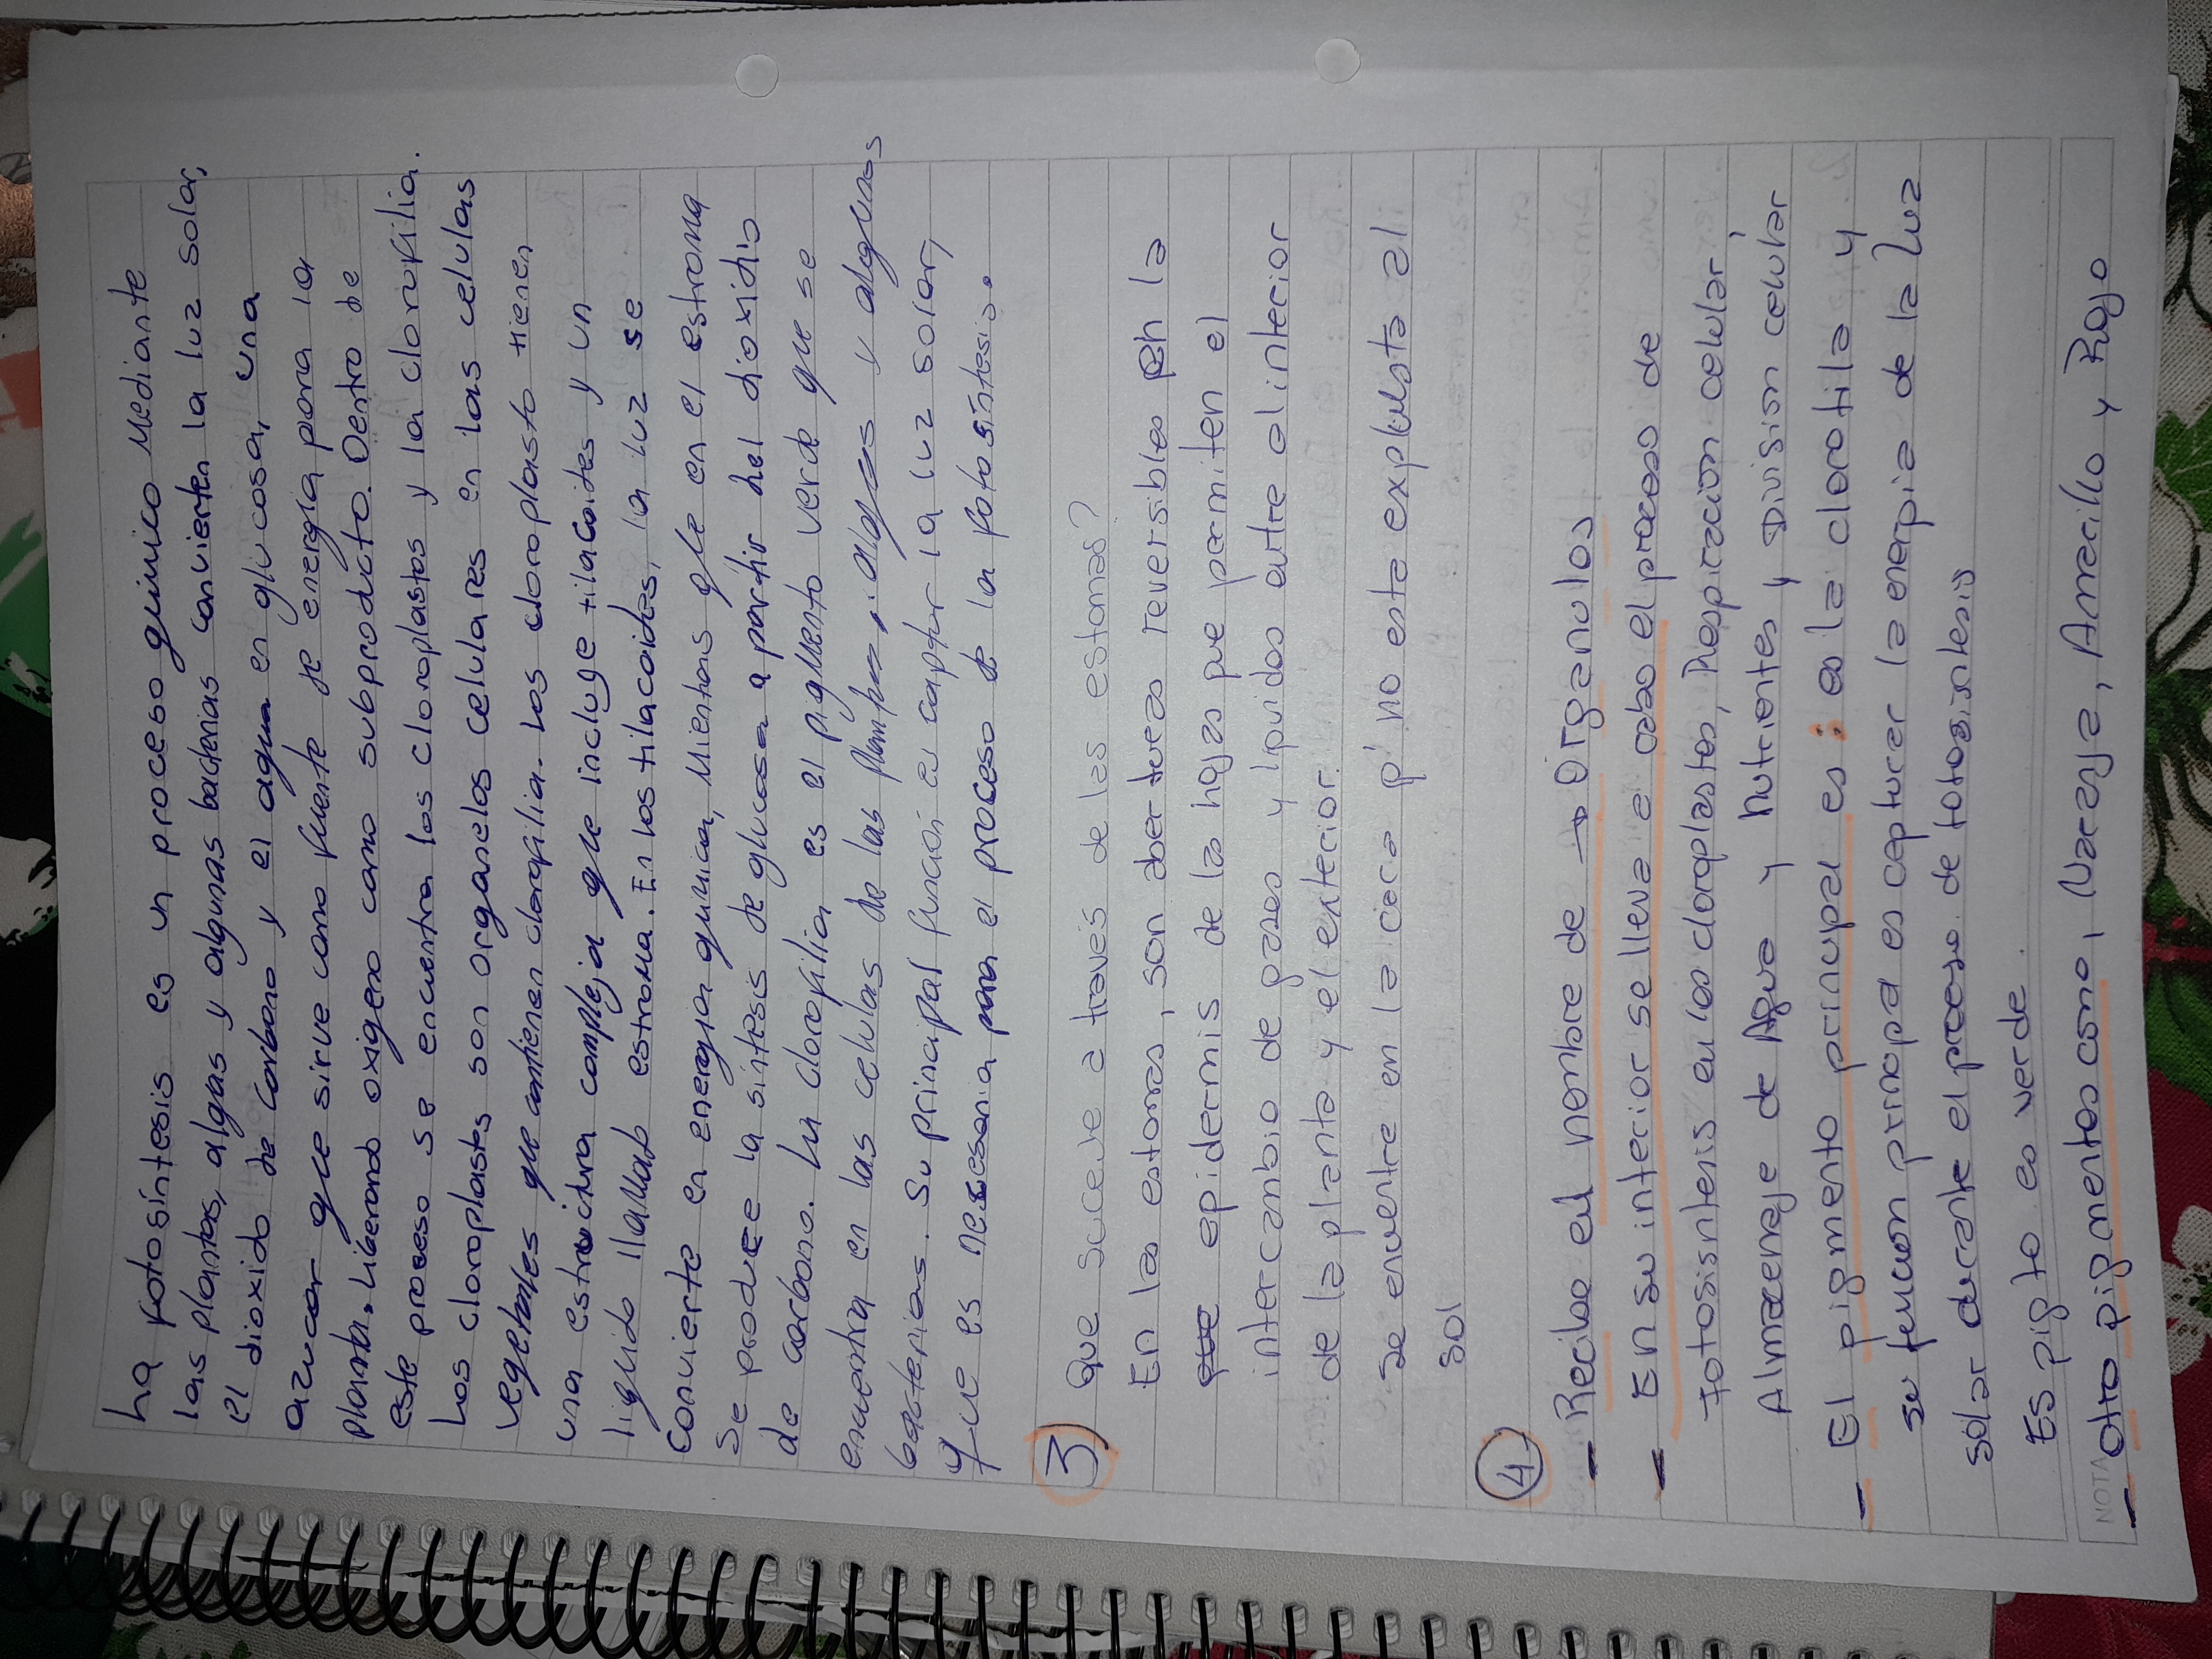 La fotosíntesis es un proceso químico Mediante
las plantas, algas y algunas bacterias convierten la luz solar,
el dioxido de carbono y el agua en glucosa, una
azucar que sirve como fuente de energía para la
planta, liberando oxigeno como subproducto. Dentro de
este proceso se encuentra los cloroplastos y la clorofilia.
Los cloroplastos son organelos celulares en las celulas
vegetales que contienen clorofilia. Los cloroplasto tienen
una estructura compleja que incluye tilacoides y un
liquido llamado estroma. En los tilacoides, la luz se
convierte en energia quimica, mientras qle en el estroma
se produce la síntesis de glucosa a partir del dioxidio
de carbono. La clorofilia es el pigmento verde que se
encuentra en las celulas de las plantas, algas y algunas
bacterias. Su principal función es captar la luz solar,
que es necesaria para el proceso de la fotosíntesis.
3) Que sucede a través de las estomas?
En las estomas, son aberturas reversibles en la
que epidermis de la hojas que permiten el
intercambio de gases y liquidos entre al interior
de la planta y el exterior.
se encuentre en la cara q' no esta expuesta al
sol
4
- Recibe el nombre de → Organulos
- En su interior se lleva a cabo el proceso de
fotosisntesis en los cloroplastos, Respiracion celular,
Almacenaje de Agua y Nutrientes y Division celular
- El pigmento principal es: es la clorofila y
su funcion principal es capturar la energia de la luz
solar durante el proceso de fotosisntesis
ES pigto es verde.
NOTA
- otro pigmentos como, Naranja, Amarillo y Rojo